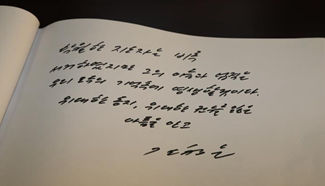 탁월한 지도자는 비록
서거하였지만 그의 이름과 업적은
우리 모두의 기억속에 영생할것이다.
위대한 동지, 위대한 전우를 잃은
아픔을 안고
김정은